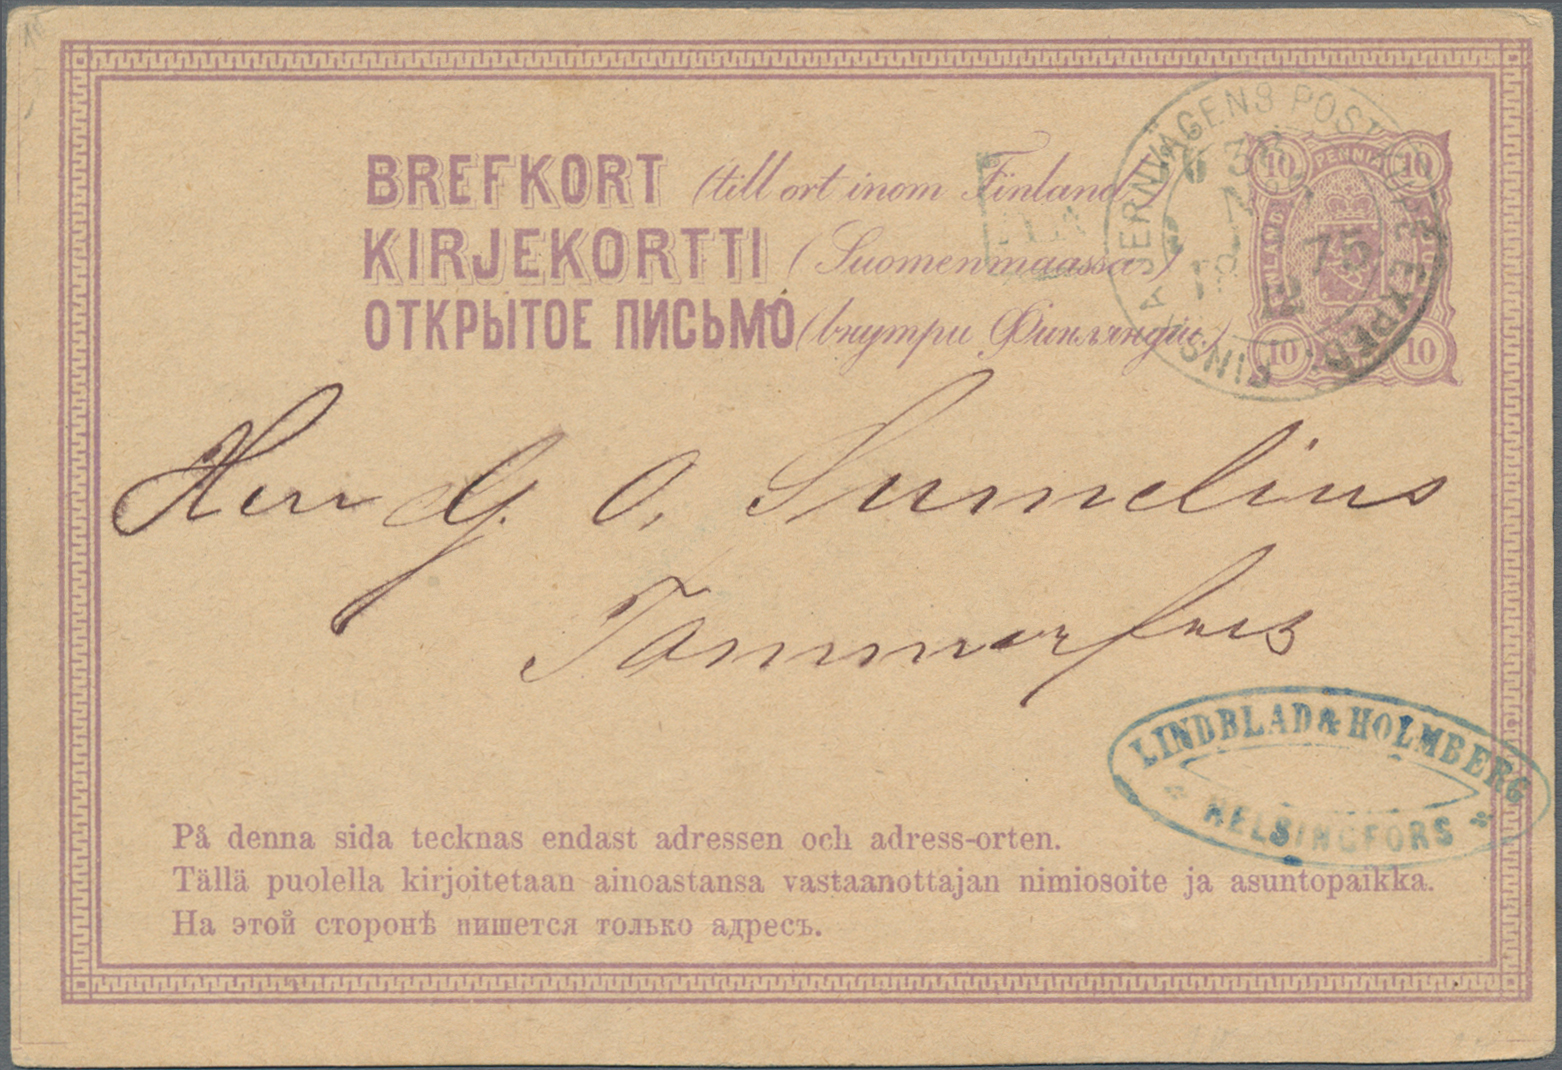 BREFKORT (till ort inom Finland)
KIRJEKORTTI (Suomenmaassa)
ОТКРЫТОЕ ПИСЬМО (внутри Финляндіи.)
10 PENNIÄ 10
10 10
FINSKA JERNVÄGENS POSTKUPÉ EXPED.
75
Herr G. O. Sumelius
Tammerfors
LINDBLAD & HOLMBERG
HELSINGFORS
På denna sida tecknas endast adressen och adress-orten.
Tällä puolella kirjoitetaan ainoastansa vastaanottajan nimiosoite ja asuntopaikka.
На этой сторонѣ пишется только адресъ.